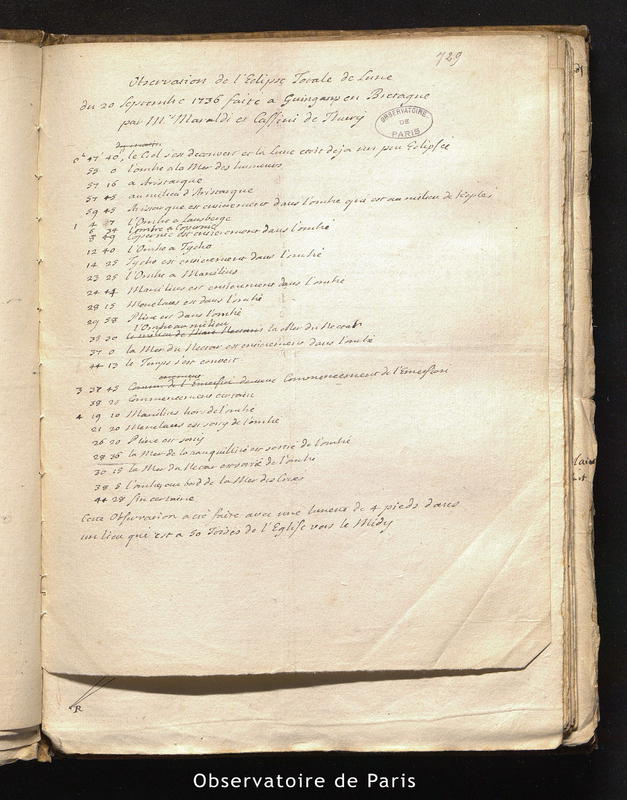 729
Observation de l'Eclipse Totale de Lune
du 20 Septembre 1736 faite a Guingamp en Bretagne
par Mrs Maraldi et Cassini de Thury
OBSERVATOIRE DE PARIS
0h 47' 40", le Ciel s'est decouvert et la Lune etoit deja un peu Eclipsée
55 0 l'ombre a la Mer des humeurs
57 16 a Aristarque
57 45 au milieu d'Aristarque
59 45 Aristarque est entierement dans l'ombre qui est au milieu de Kepler
1 4 7 l'Ombre a Lansberge
6 34 l'ombre a Copernic
8 49 Copernic est entierement dans l'ombre
12 40 l'Ombre a Tycho
14 25 Tycho est entierement dans l'ombre
23 25 l'Ombre a Manilius
24 44 Manilius est entierement dans l'ombre
28 15 Menelaus est dans l'ombre
29 58 Pline est dans l'ombre
l'Ombre au milieu
35 30 la Mer du Nectar
37 0 la Mer du Nectar est entierement dans l'ombre
44 13 le Temps s'est couvert
3 37 45 Commencement de l'Emersion
38 20 Commencement certain
4 19 10 Manilius hors de l'ombre
21 20 Menelaus est sorty de l'ombre
26 20 Pline est sorty
28 36 la Mer de la tranquillité est sortie de l'ombre
30 15 la Mer du Nectar est sortie de l'ombre
38 5 l'ombre au bord de la Mer des Crises
44 28 fin certaine
Cette Observation a eté faite avec une lunette de 4 pieds dans
un lieu qui est a 50 Toises de l'Eglise vers le Midy
R
Observatoire de Paris